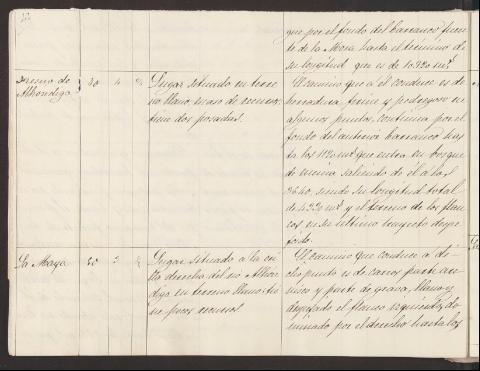 que por el fondo del barranco fuen
te de la Mora hasta el término de
su longitud que es de 15.320 m.s
Fresno de
Alhóndiga
20 4 "
Lugar situado en terre
no llano, escaso de recursos
tiene dos posadas.
El camino que á él conduce es de
herradura, firme y pedregoso en
algunos puntos, continua por el
fondo del anterior barranco has
ta los 1120 m.s que entra en bosque
de encina saliendo de él á los
3640, siendo su longitud total
de 4320 m.s y el terreno de los flan
cos en su último trayecto despe
jado.
La Maya
20 3
Lugar situado á la ori
lla derecha del rio Alhón
diga en terreno llano: tie
ne pocos recursos
El camino que conduce á di
cho punto es de carros parte are
nisco y parte de grava, llano y
despejado el flanco izquierdo, do
minado por el derecho hasta los